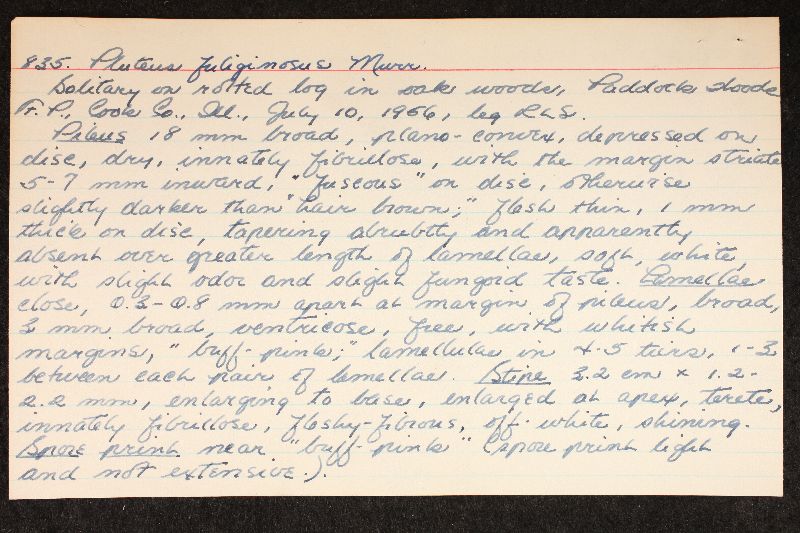 835. Pluteus fuliginosus Murr.
Solitary on rotted log in oak woods, Paddock Woods
F. P., Cook Co., Ill., July 10, 1966, leg RLS.
Pileus 18 mm broad, plano-convex, depressed on
disc, dry, innately fibrillose, with the margin striate
5-7 mm inward, "fuscous" on disc, otherwise
slightly darker than "hair brown;" flesh thin, 1 mm
thick on disc, tapering abrubtly and apparently
absent over greater length of lamellae, soft, white,
with slight odor and slight fungoid taste. Lamellae
close, 0.3-0.8 mm apart at margin of pileus, broad,
3 mm broad, ventricose, free, with whitish
margins, "buff-pink;" lamellulae in 4-5 tiers, 1-3
between each pair of lamellae. Stipe 3.2 cm x 1.2-
2.2 mm, enlarging to base, enlarged at apex, terete,
innately fibrillose, fleshy-fibrous, off-white, shining.
Spore print near "buff-pink" (spore print light
and not extensive.).